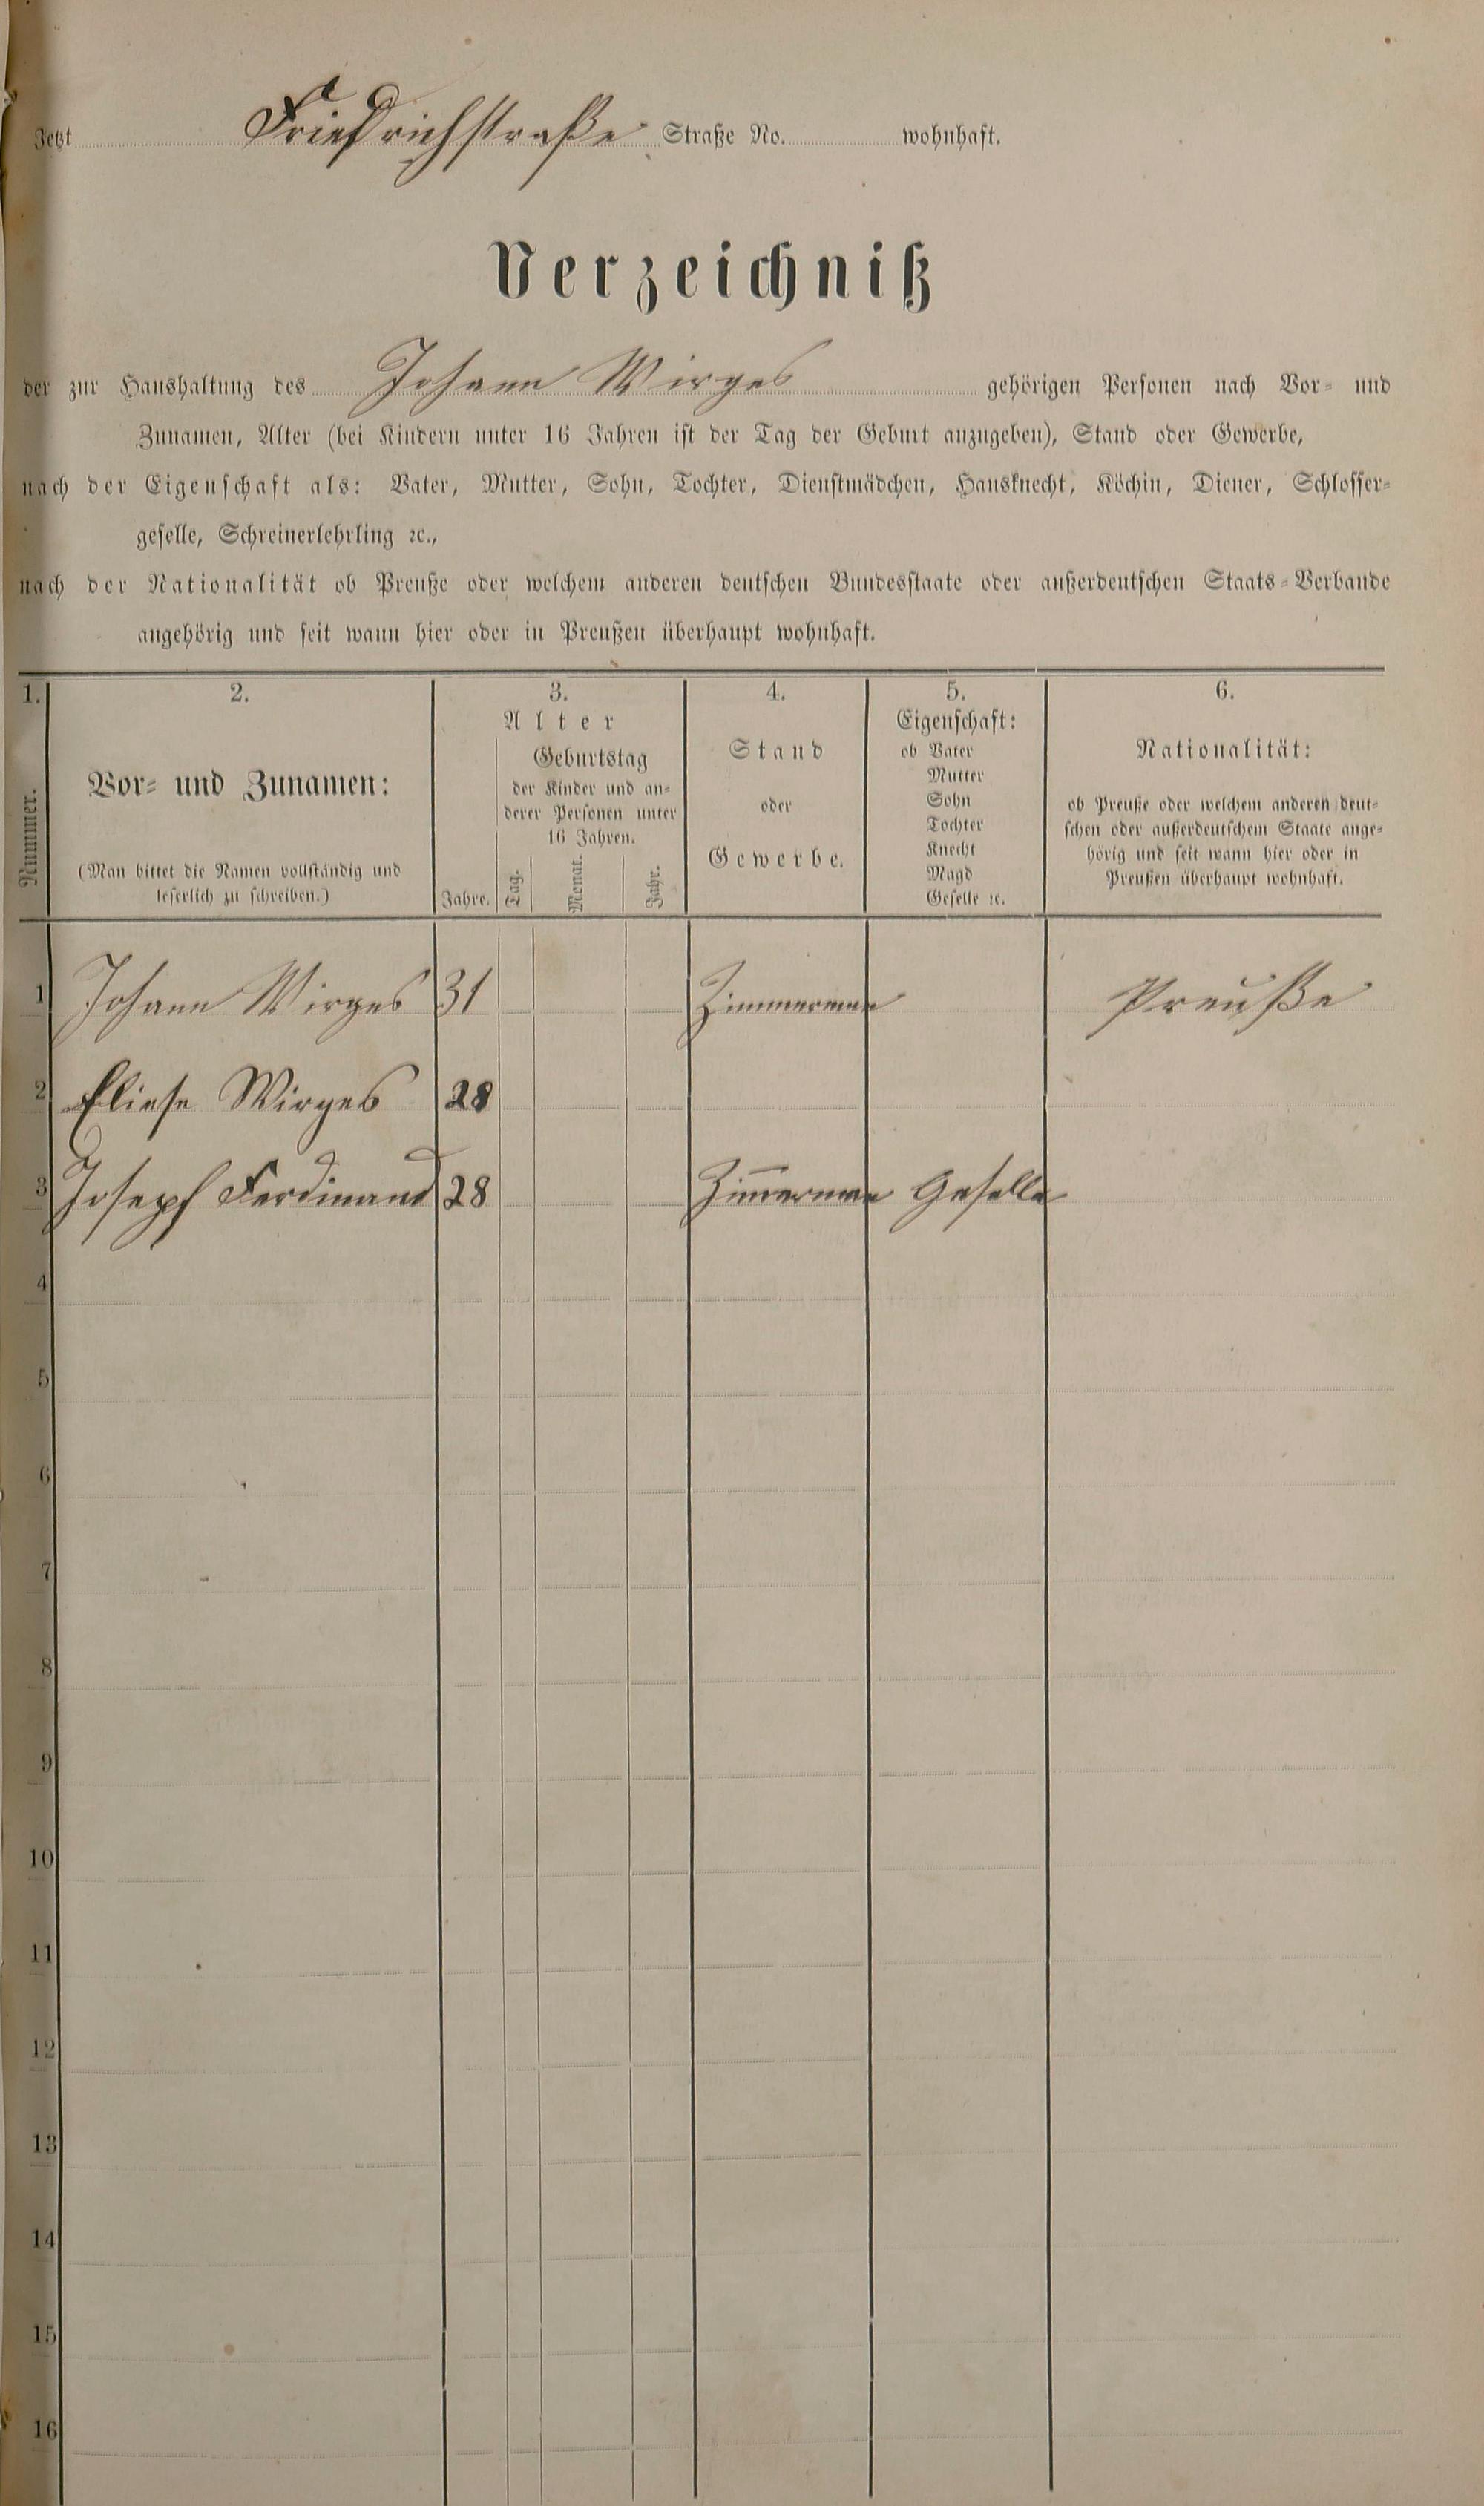 Jetzt Friedrichstraße Straße No. wohnhaft.
Verzeichniß
der zur Haushaltung des Johann Wirges gehörigen Personen nach Vor- und
Zunamen, Alter (bei Kindern unter 16 Jahren ist der Tag der Geburt anzugeben), Stand oder Gewerbe,
nach der Eigenschaft als: Vater, Mutter, Sohn, Tochter, Dienstmädchen, Hausknecht, Köchin, Diener, Schlosser-
geselle, Schreinerlehrling ꝛc.,
nach der Nationalität ob Preuße oder welchem anderen deutschen Bundesstaate oder außerdeutschen Staats-Verbande
angehörig und seit wann hier oder in Preußen überhaupt wohnhaft.
1.
Nummer.
2.
Vor- und Zunamen:
(Man bittet die Namen vollständig und
leserlich zu schreiben.)
3.
Alter
Jahre.
Geburtstag
der Kinder und an-
derer Personen unter
16 Jahren.
Tag. Monat. Jahr.
4.
Stand
oder
Gewerbe.
5.
Eigenschaft:
ob Vater
Mutter
Sohn
Tochter
Knecht
Magd
Geselle ꝛc.
6.
Nationalität:
ob Preuße oder welchem anderen deut-
schen oder außerdeutschem Staate ange-
hörig und seit wann hier oder in
Preußen überhaupt wohnhaft.
1 Johann Wirges 31 Zimmerman Preuße
2 Eliese Wirges 28
3 Joseph Ferdinand 28 Zim̅erman Geselle
4
5
6
7
8
9
10
11
12
13
14
15
16